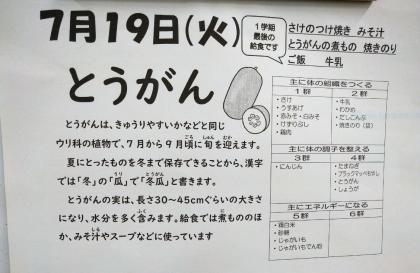 7月19日(火)
1学期
最後の
給食です
さけのつけ焼き みそ汁
とうがんの煮もの 焼きのり
ご飯 牛乳
とうがん
とうがんは、きゅうりやすいかなどと同じ
ウリ科の植物で、7月から9月頃に旬を迎えます。
夏にとったものを冬まで保存できることから、漢字
では「冬」の「瓜」で「冬瓜」と書きます。
とうがんの実は、長さ30～45cmぐらいの大きさ
になり、水分を多く含みます。給食では煮もののほ
か、みそ汁やスープなどに使っています
主に体の組織をつくる
1群 2群
・さけ
・うすあげ
・赤みそ・白みそ
・けずりぶし
・鶏肉
・牛乳
・わかめ
・だしこんぶ
・焼きのり（袋）
主に体の調子を整える
3群 4群
・にんじん
・たまねぎ
・ブラックマッペもやし
・とうがん
・しょうが
主にエネルギーになる
5群 6群
・精白米
・砂糖
・じゃがいも
・じゃがいもでん粉